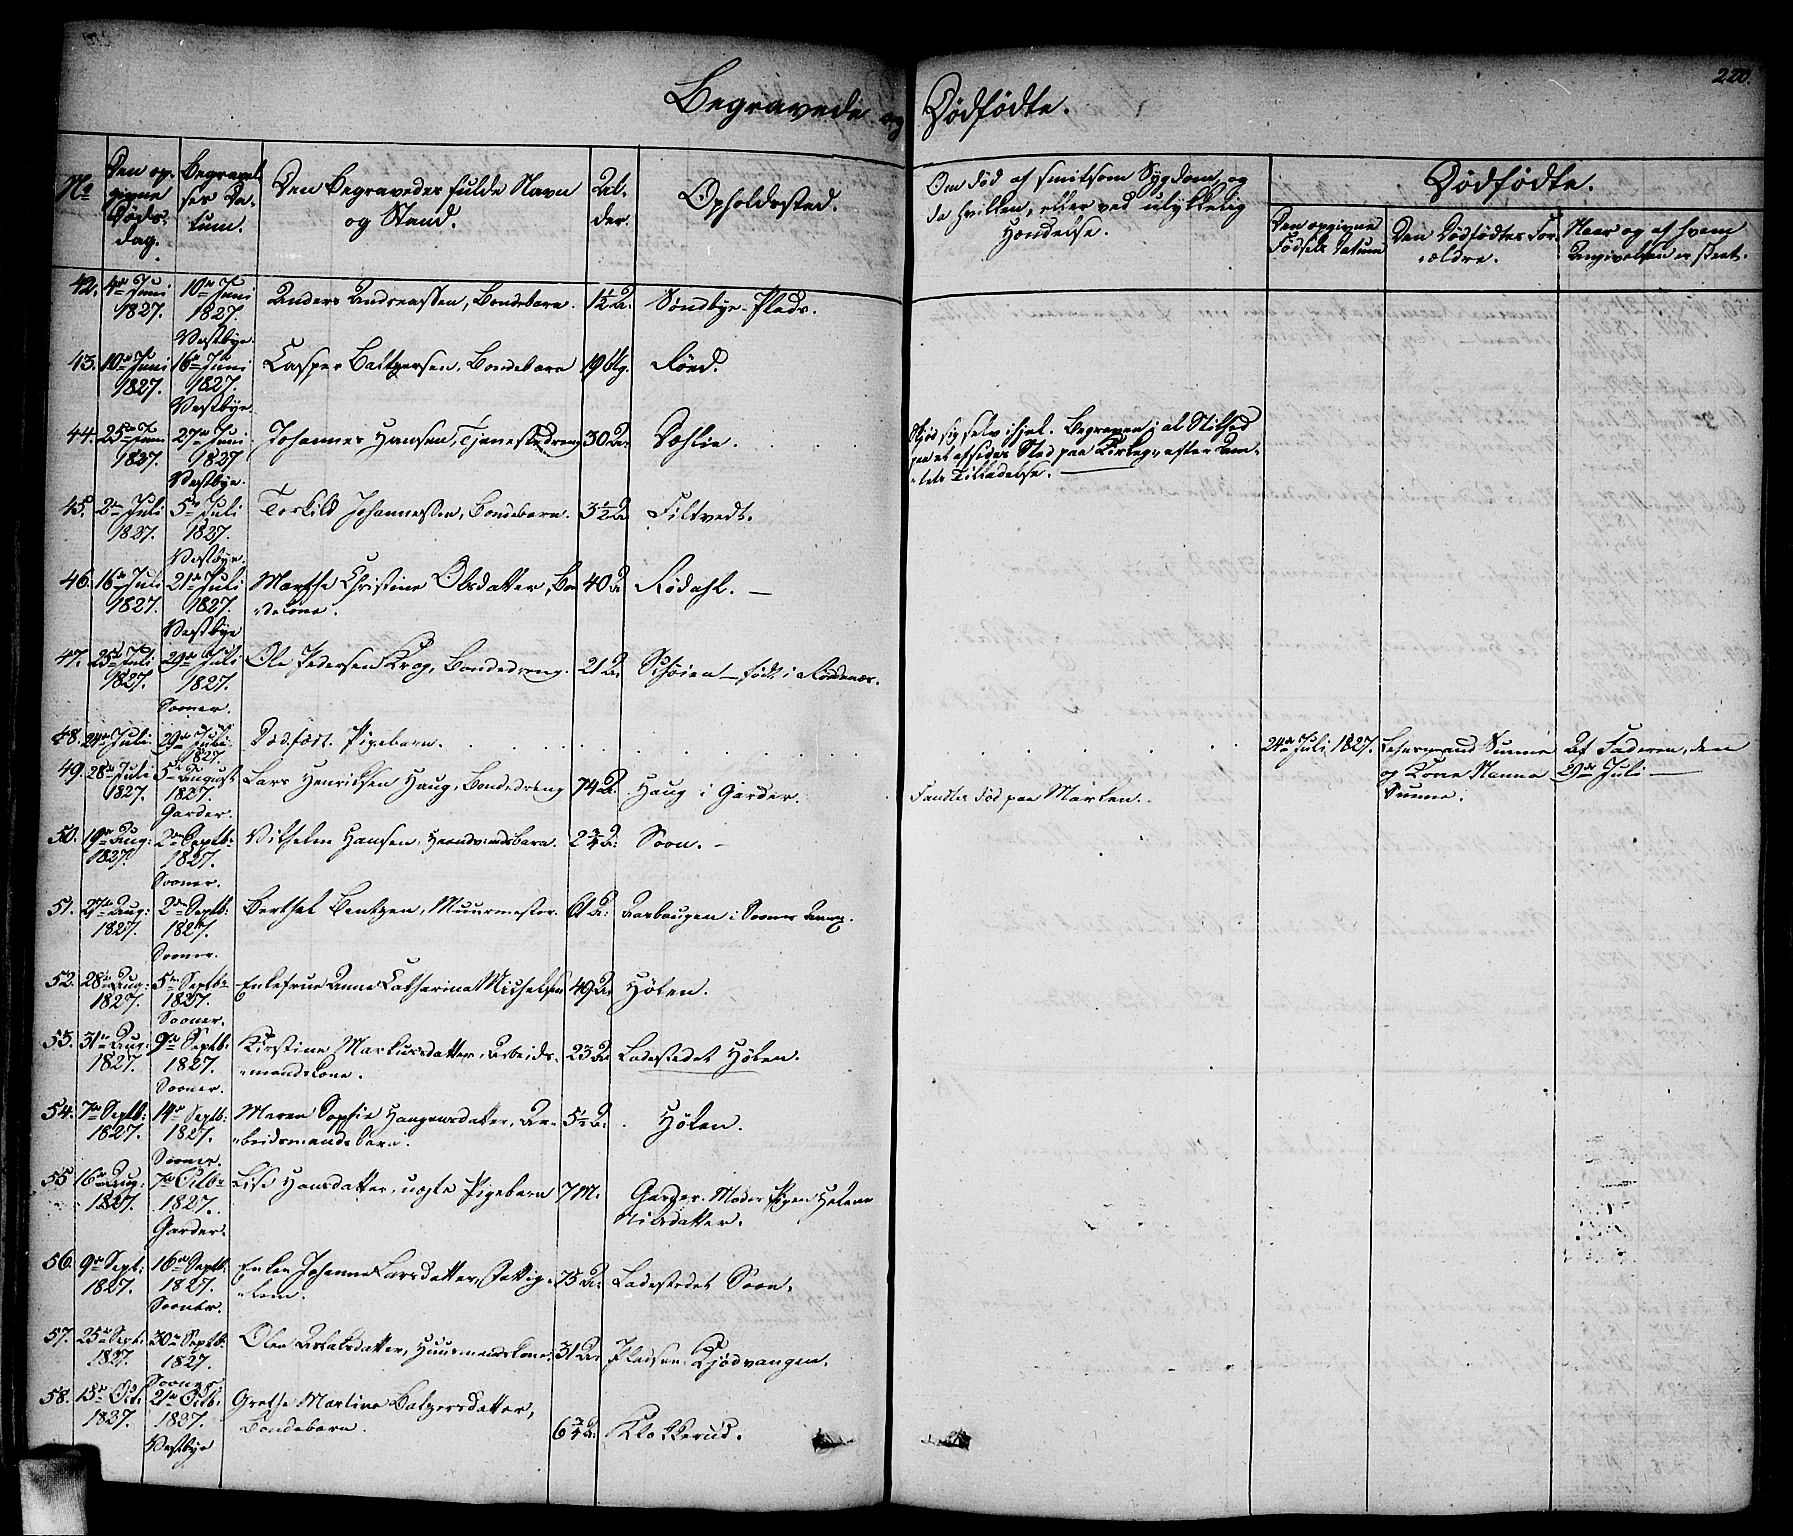 220.
Begravede og Dødfødte.
No
Den opgivne Døds-dag.
Begravelses Datum.
Den Begravedes fulde Navn og Stand.
Alder.
Opholdssted.
Om død af smitsom Sygdom, og da hvilken, eller ved ulykkelig Hændelse.
Dødfødte.
Den opgivne Fødsels Datum
Den Dødfødtes Forældre.
Naar og af hvem Angivelsen er skeet.
42. 4de Juni 1827. 10de Juni 1827. Vestbye. Anders Andreassen, Bondebarn. 1½ A. Søndbye-Plads.
43. 10de Juni 1827. 16de Juni 1827. Vestbye. Casper Baltzersen, Bondebarn 19 Ug. Røed.
44. 25de Juni 1827. 27de Juni 1827 Vestbye. Johannes Hansen, Tjenestedreng 30 A.
Skjød sig selv ihjel. Begraven i al Stilhed
paa et afsides Sted paa Kirkeg., efter Am-
tets Tilladelse.
45. 2den Juli 1827. 5te Juli 1827. Vestbye. Torkild Johannessen, Bondebarn. 3½ A. Filtvedt.
46. 16de Juli 1827. 21de Juli 1827. Vestbye Marthe Christine Olsdatter, Bon-
dekone. 40 A. Rødahl.
47. 25de Juli 1827. 29de Juli 1827. Sooner. Ole Pedersen Krog, Bondedreng. 21 A. Schøien - født i Rødenæs.
48. 24de Juli. 29de Juli 1827. Dødfødt Pigebarn. 24de Juli 1827. Lehnsmand Sunne
og Kone Nanna
Sunne. Af Faderen, den
29de Juli
49. 28de Juli 1827. 5te August 1827. Garder. Lars Henriksen Haug, Bondedreng 74 A. Haug i Garder. Fandtes død paa Marken.
50. 19de Aug: 1827. 2den Septb: 1827. Sooner. Vilhelm Hansen, 2¾ A. Soon.
51. 27de Aug: 1827. 2den Septb: 1827. Sooner. Berthel Bentzen, Muurmester. 61 A: i Sooner Annex.
52. 28de Aug: 1827. 5te Septbr 1827. Sooner. Enkefrue Anne Catharina Michelsen 49 A: Hølen.
53. 31te Aug: 1827. 9de Septb: 1827. Sooner. Kirstine Markusdatter, Arbeids-
mandskone. 23 A. Ladestedet Hølen.
54. 7de Septb: 1827. 14de Septb: 1827. Sooner. Maren Sophie Haagensdatter, Ar-
beidsmands Barn. 5½ A. Hølen.
55 16de Aug: 1827. 7de Octbr 1827. Garder. Lise Hansdatter, uægte Pigebarn 7 M. Garder. Moder Pigen Helene
Nilsdatter.
56. 9de Sept: 1827. 16de Septb: 1827. Sooner. Enken Johanne Larsdatter, Fattig-
lem. 75 A: Ladestedet Soon.
57. 25de Sept: 1827. 30de Septb: 1827. Sooner Olea Aslaksdatter, Huusmandskone. 31 A: Pladsen Kjødvangen.
58. 15de Oct: 1827. 21de Octb: 1827. Vestbye Grethe Martine Baltzersdatter,
Bondebarn. 6¾ A: Klokkerud.